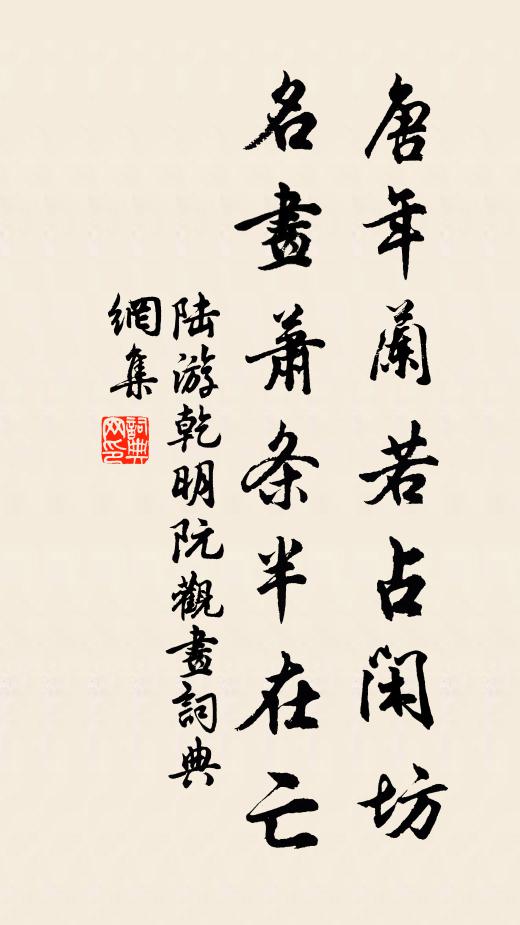 唐年蘭若占閑坊
名畫蕭条半在亡
陆游乾明阮觀畫詞典
網集
詞典
网印